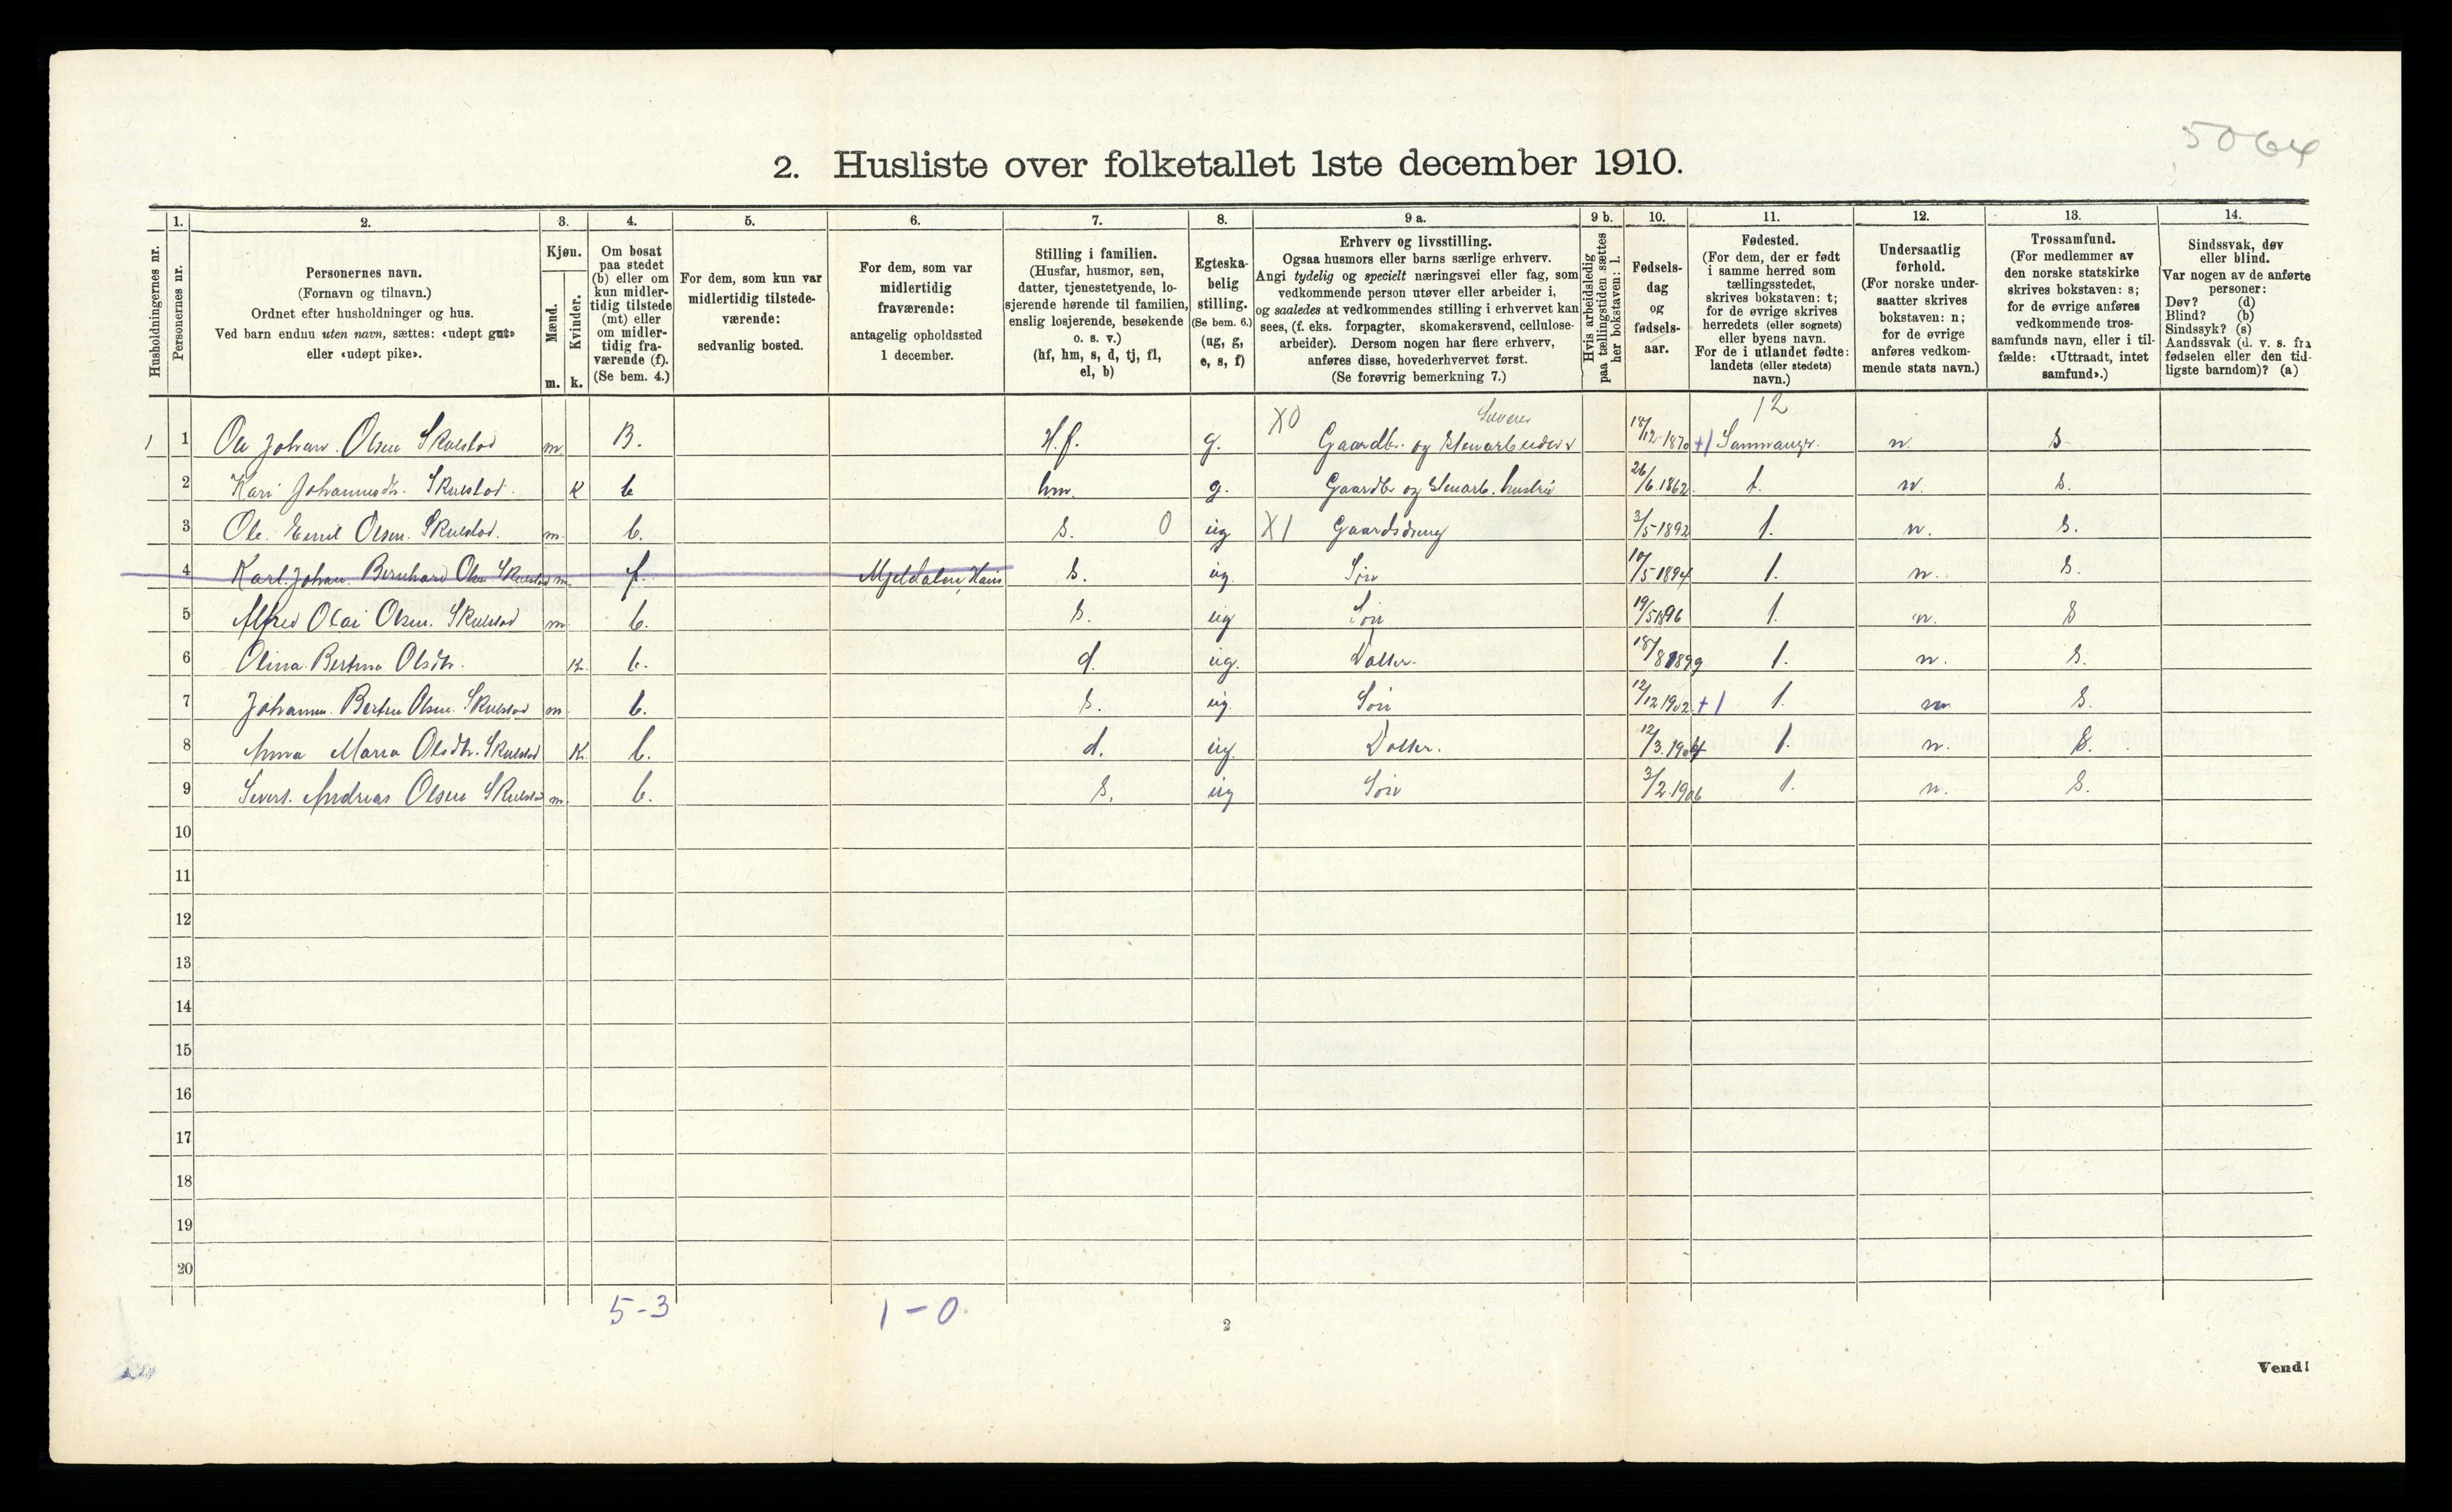 5064
2. Husliste over folketallet 1ste december 1910.
Husholdningernes nr.
1. Personernes nr.
2. Personernes navn.
(Fornavn og tilnavn.)
Ordnet efter husholdninger og hus.
Ved barn endnu uten navn, sættes: «udøpt gut»
eller «udøpt pike».
3. Kjøn.
Mænd. Kvinder.
m. k.
4. Om bosat
paa stedet
(b) eller om
kun midler-
tidig tilstede
(mt) eller
om midler-
tidig fra-
værende (f).
(Se bem. 4.)
5. For dem, som kun var
midlertidig tilstede-
værende:
sedvanlig bosted.
6. For dem, som var
midlertidig
fraværende:
antagelig opholdssted
1 december.
7. Stilling i familien.
(Husfar, husmor, søn,
datter, tjenestetyende, lo-
sjerende hørende til familien,
enslig losjerende, besøkende
o. s. v.)
(hf, hm, s, d, tj, fl,
el, b)
8. Egteska-
belig
stilling.
(Se bem. 6.)
(ug, g,
e, s, f)
9 a. Erhverv og livsstilling.
Ogsaa husmors eller barns særlige erhverv.
Angi tydelig og specielt næringsvei eller fag, som
vedkommende person utøver eller arbeider i,
og saaledes at vedkommendes stilling i erhvervet kan
sees, (f. eks. forpagter, skomakersvend, cellulose-
arbeider). Dersom nogen har flere erhverv,
anføres disse, hovederhvervet først.
(Se forøvrig bemerkning 7.)
9 b. Hvis arbeidsledig
paa tællingstiden sættes
her bokstaven: l.
10. Fødsels-
dag
og
fødsels-
aar.
11. Fødested.
(For dem, der er født
i samme herred som
tællingsstedet,
skrives bokstaven: t;
for de øvrige skrives
herredets (eller sognets)
eller byens navn.
For de i utlandet fødte:
landets (eller stedets)
navn.)
12. Undersaatlig
forhold.
(For norske under-
saatter skrives
bokstaven: n;
for de øvrige
anføres vedkom-
mende stats navn.)
13. Trossamfund.
(For medlemmer av
den norske statskirke
skrives bokstaven: s;
for de øvrige anføres
vedkommende tros-
samfunds navn, eller i til-
fælde: «Uttraadt, intet
samfund».)
14. Sindssvak, døv
eller blind.
Var nogen av de anførte
personer:
Døv? (d)
Blind? (b)
Sindssyk? (s)
Aandssvak (d. v. s. fra
fødselen eller den tid-
ligste barndom)? (a)
X0 12
1 1 Ole Johan Olsen Skulstad m. B. H.f. g. Gaardbr. og Stenarbeider 18/12 1870 +1 Samnanger n. s
2 Kari Johannesdtr. Skulstad. K b hm. g. Gaardbr og Stenarb. hustru 26/6.1862. t. n. s.
3 Ole Emil Olsen. Skulstad. m. b. s. 0 ug X1 Gaardsdreng 3/5 1892 t. n. s.
4 Karl Johan Bernhard Olsen Skulstad m. f. Mjeldalen, Haus s. ug. Søn 10/5 1894 t. n. s.
5 Alfred Olai Olsen. Skulstad m. b. s. ug Søn 19/5 1896 t. n. s
6 Olina Bertina Olsdtr. K. b. d. ug. Datter. 18/8 1899 t. n. s.
7 Johannes Bertin Olsen Skulstad m b. s. ug. Søn 12/12 1902 +1 t. n. s.
8 Anna Maria Olsdtr. Skulstad K. b. d. ug. Datter. 12/3.1904 t. n. s.
9 Severt. Andreas Olsen Skulstad m. b. s. ug Søn 3/2.1906 t. n. s.
10
11
12
13
14
15
16
17
18
19
20
5-3 1-0
2
Vend!